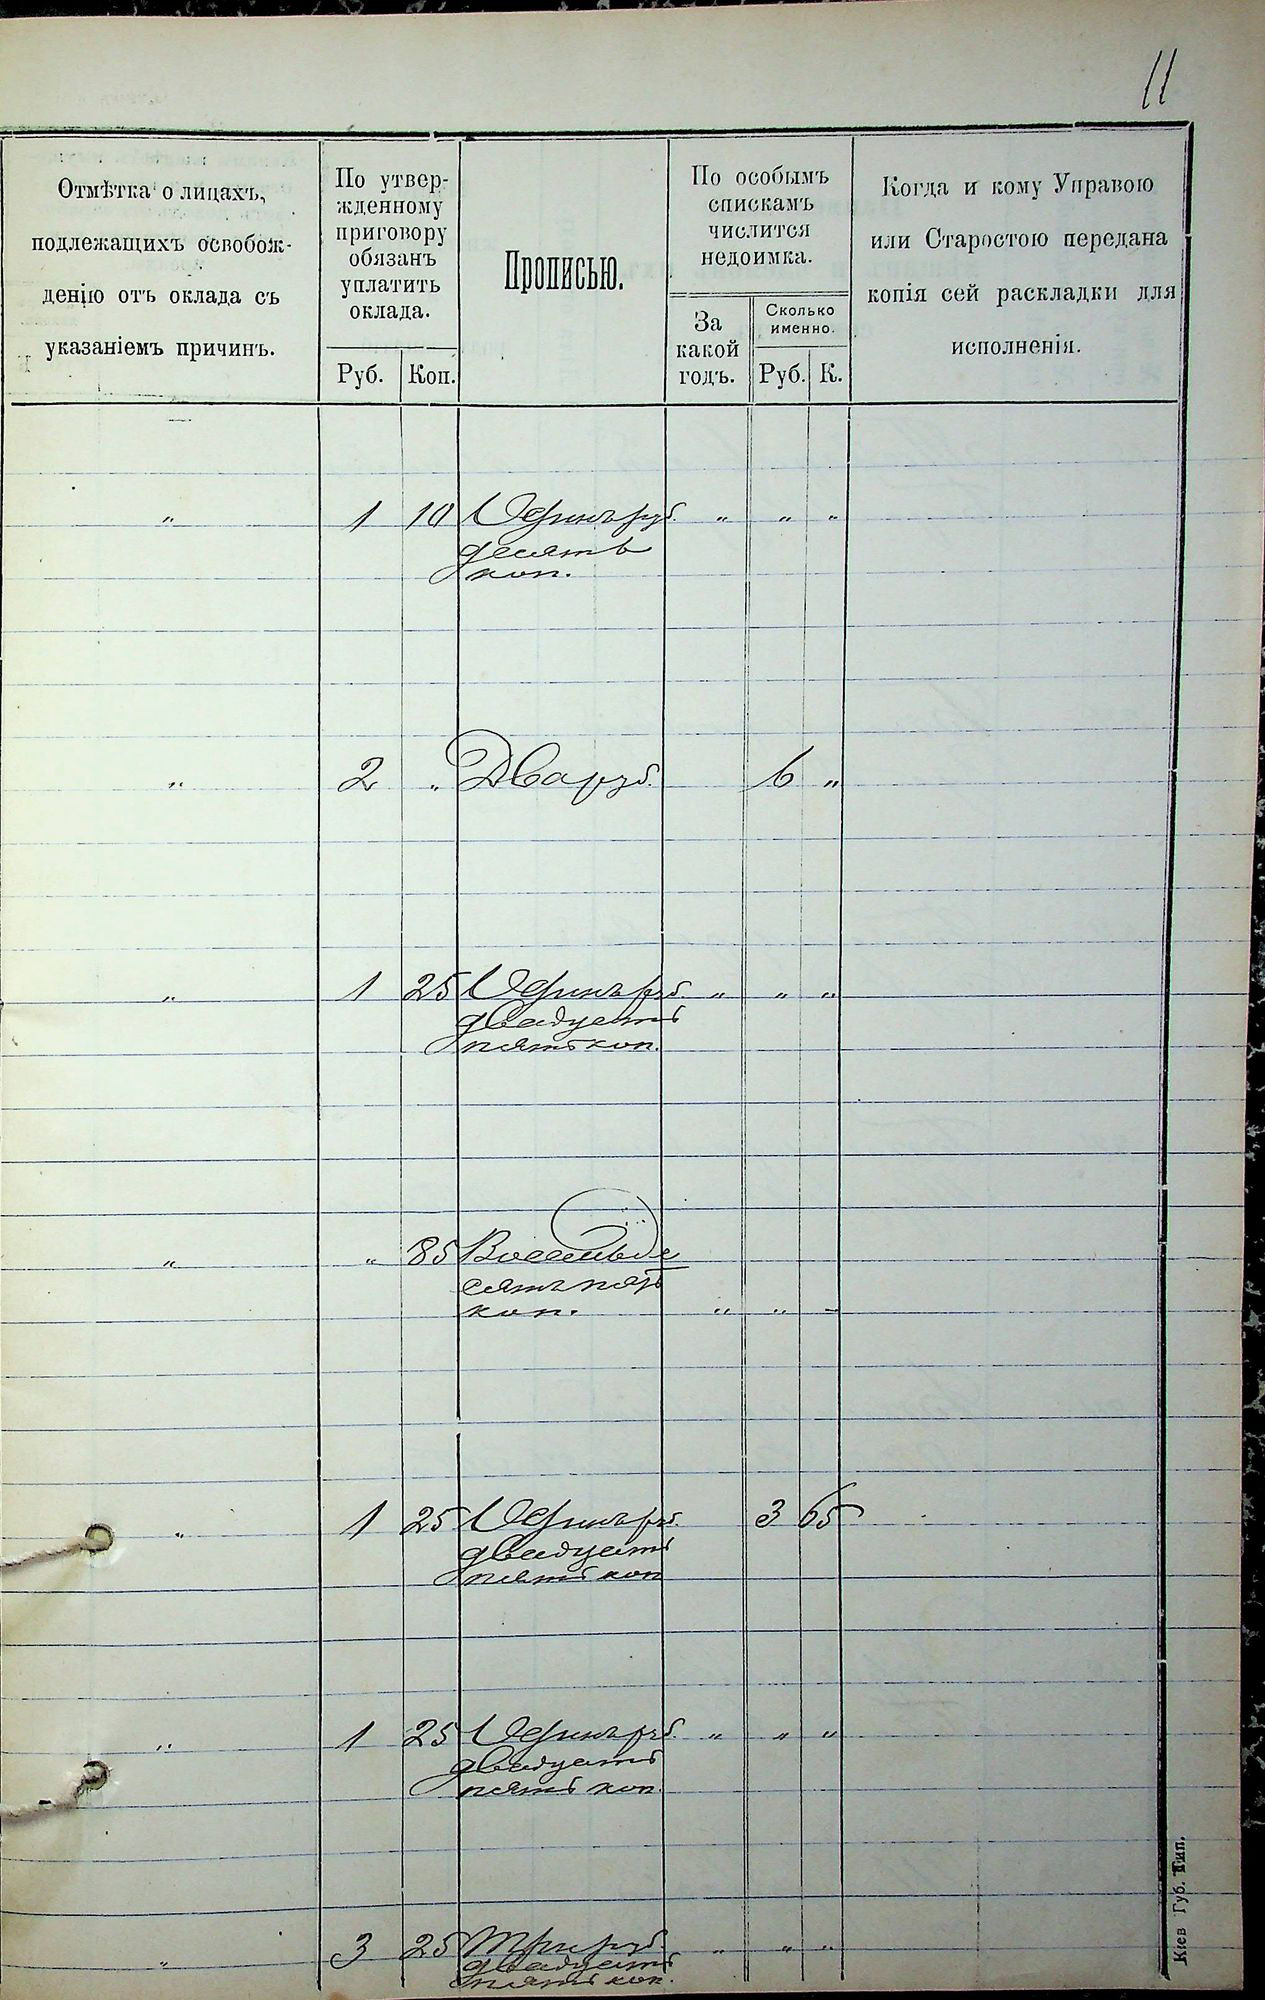 11
Отмѣтка о лицахъ,
подлежащихъ освобож-
денію отъ оклада съ
указаніемъ причинъ.
По утвер-
жденному
приговору
обязанъ
уплатить
оклада.
Руб. Коп.
Прописью.
По особымъ
спискамъ
числится
недоимка.
За
какой
годъ.
Сколько
именно.
Руб. К.
Когда и кому Управою
или Старостою передана
копія сей раскладки для
исполненія.
" 1 10 Одинъ руб. " " "
десять
коп.
" 2 " Два руб. 6 "
" 1 25 Одинъ руб. " " "
двадцать
пять коп.
" " 85 Восемьде
сятъ пять
коп. " " "
" 1 25 Одинъ руб. 3 65
двадцать
пять коп
" 1 25 Одинъ руб. " " "
двадцать
пять коп.
" 3 25 Три руб " " "
двадцать
пять коп.
Кіев Губ. Тип.